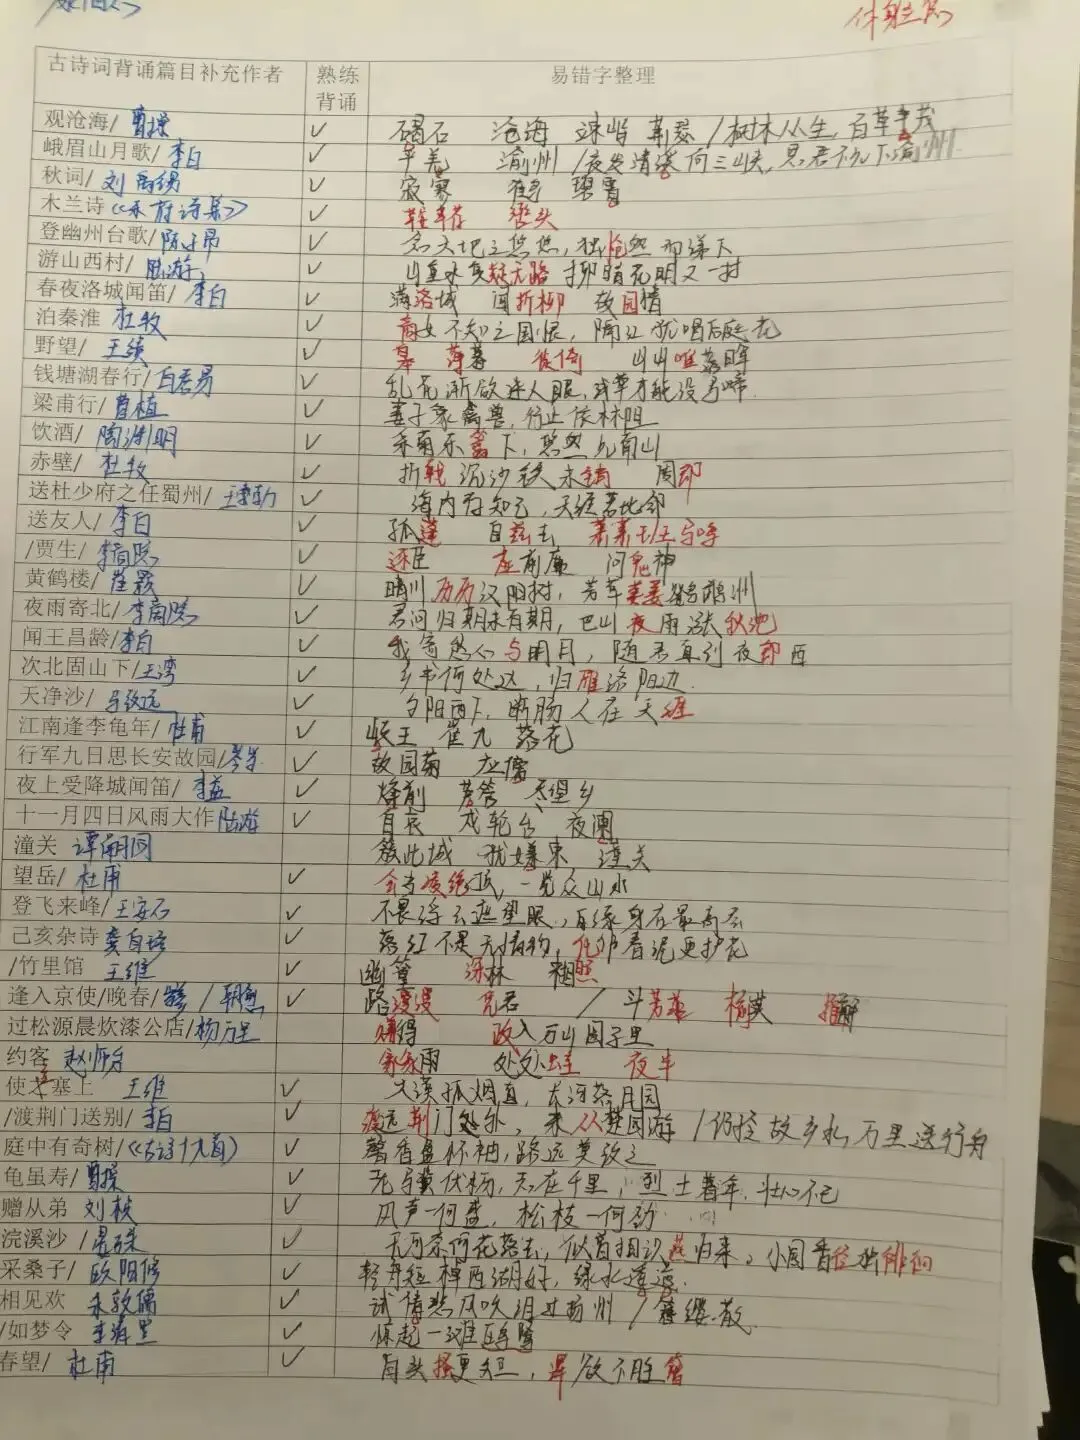 古诗词背诵篇目补充作者 熟练背诵 易错字整理
观沧海/ 曹操 ✓ 碣石 沧海 竦峙 /树木丛生，百草丰茂
峨眉山月歌/ 李白 ✓ 半羌 渝州 /夜发清溪向三峡，思君不见下渝州
秋词/ 刘禹锡 ✓ 寂寥 鹤 碧霄
木兰诗《乐府诗集》 ✓ 鞍鞯 辔头
登幽州台歌/ 陈子昂 ✓ 念天地之悠悠，独怆然而涕下
游山西村/ 陆游 ✓ 山重水复疑无路 柳暗花明又一村
春夜洛城闻笛/ 李白 ✓ 满洛城 闻折柳 故园情
泊秦淮 杜牧 ✓ 商女不知亡国恨，隔江犹唱后庭花
野望/ 王绩 ✓ 皋 薄暮 徙倚 山山唯落晖
钱塘湖春行/ 白居易 ✓ 乱花渐欲迷人眼，浅草才能没马蹄
梁甫行/ 曹植 ✓ 妻子象禽兽，行止依林阻
饮酒/ 陶渊明 ✓ 采菊东篱下，悠然见南山
赤壁/ 杜牧 ✓ 折戟沉沙铁未销 周郎
送杜少府之任蜀州/ 王勃 ✓ 海内存知己，天涯若比邻
送友人/ 李白 ✓ 孤蓬 自兹去 萧萧班马鸣
/贾生/ 李商隐 ✓ 逐臣 虚前席 问鬼神
黄鹤楼/ 崔颢 ✓ 晴川历历汉阳树，芳草萋萋鹦鹉洲
夜雨寄北/ 李商隐 ✓ 君问归期未有期，巴山夜雨涨秋池
闻王昌龄/李白 ✓ 我寄愁心与明月，随君直到夜郎西
次北固山下/王湾 ✓ 乡书何处达，归雁洛阳边.
天净沙/ 马致远 ✓ 夕阳西下，断肠人在天涯
江南逢李龟年/ 杜甫 ✓ 岐王 崔九 落花
行军九日思长安故园/岑参 ✓ 故园菊 应傍
夜上受降城闻笛/ 李益 ✓ 烽前 芦管 尽望乡
十一月四日风雨大作 陆游 ✓ 自哀 戍轮台 夜阑
潼关 谭嗣同 簇此城 犹嫌束 潼关
望岳/ 杜甫 ✓ 会当凌绝顶，一览众山小
登飞来峰/ 王安石 ✓ 不畏浮云遮望眼，自缘身在最高层
己亥杂诗 龚自珍 ✓ 落红不是无情物，化作春泥更护花
/竹里馆 王维 ✓ 幽篁 深林 相照
逢入京使/晚春/岑参 / 韩愈 ✓ 路漫漫 / 斗芳菲 杨荚
过松源晨炊漆公店/杨万里 赚得 政入万山围子里
约客 赵师秀 家家雨 处处蛙 夜半
使至塞上 王维 ✓ 大漠孤烟直，长河落月圆
/渡荆门送别/ 李白 ✓ 渡远荆门外，来从楚国游 /仍怜故乡水，万里送行舟
庭中有奇树/《古诗十九首》 ✓ 馨香盈怀袖，路远莫致之
龟虽寿/ 曹操 ✓ 老骥伏枥，志在千里，烈士暮年，壮心不已
赠从弟 刘桢 ✓ 风声一何盛，松枝一何劲
浣溪沙/ 晏殊 ✓ 无可奈何花落去，似曾相识燕归来，小园香径独徘徊
采桑子/ 欧阳修 ✓ 轻舟短棹西湖好，绿水逶迤.
相见欢 朱敦儒 ✓ 试倩悲风吹泪过扬州 / 簪缨散
/如梦令 李清照 ✓ 惊起一滩鸥鹭
春望/ 杜甫 ✓ 白头搔更短，浑欲不胜簪